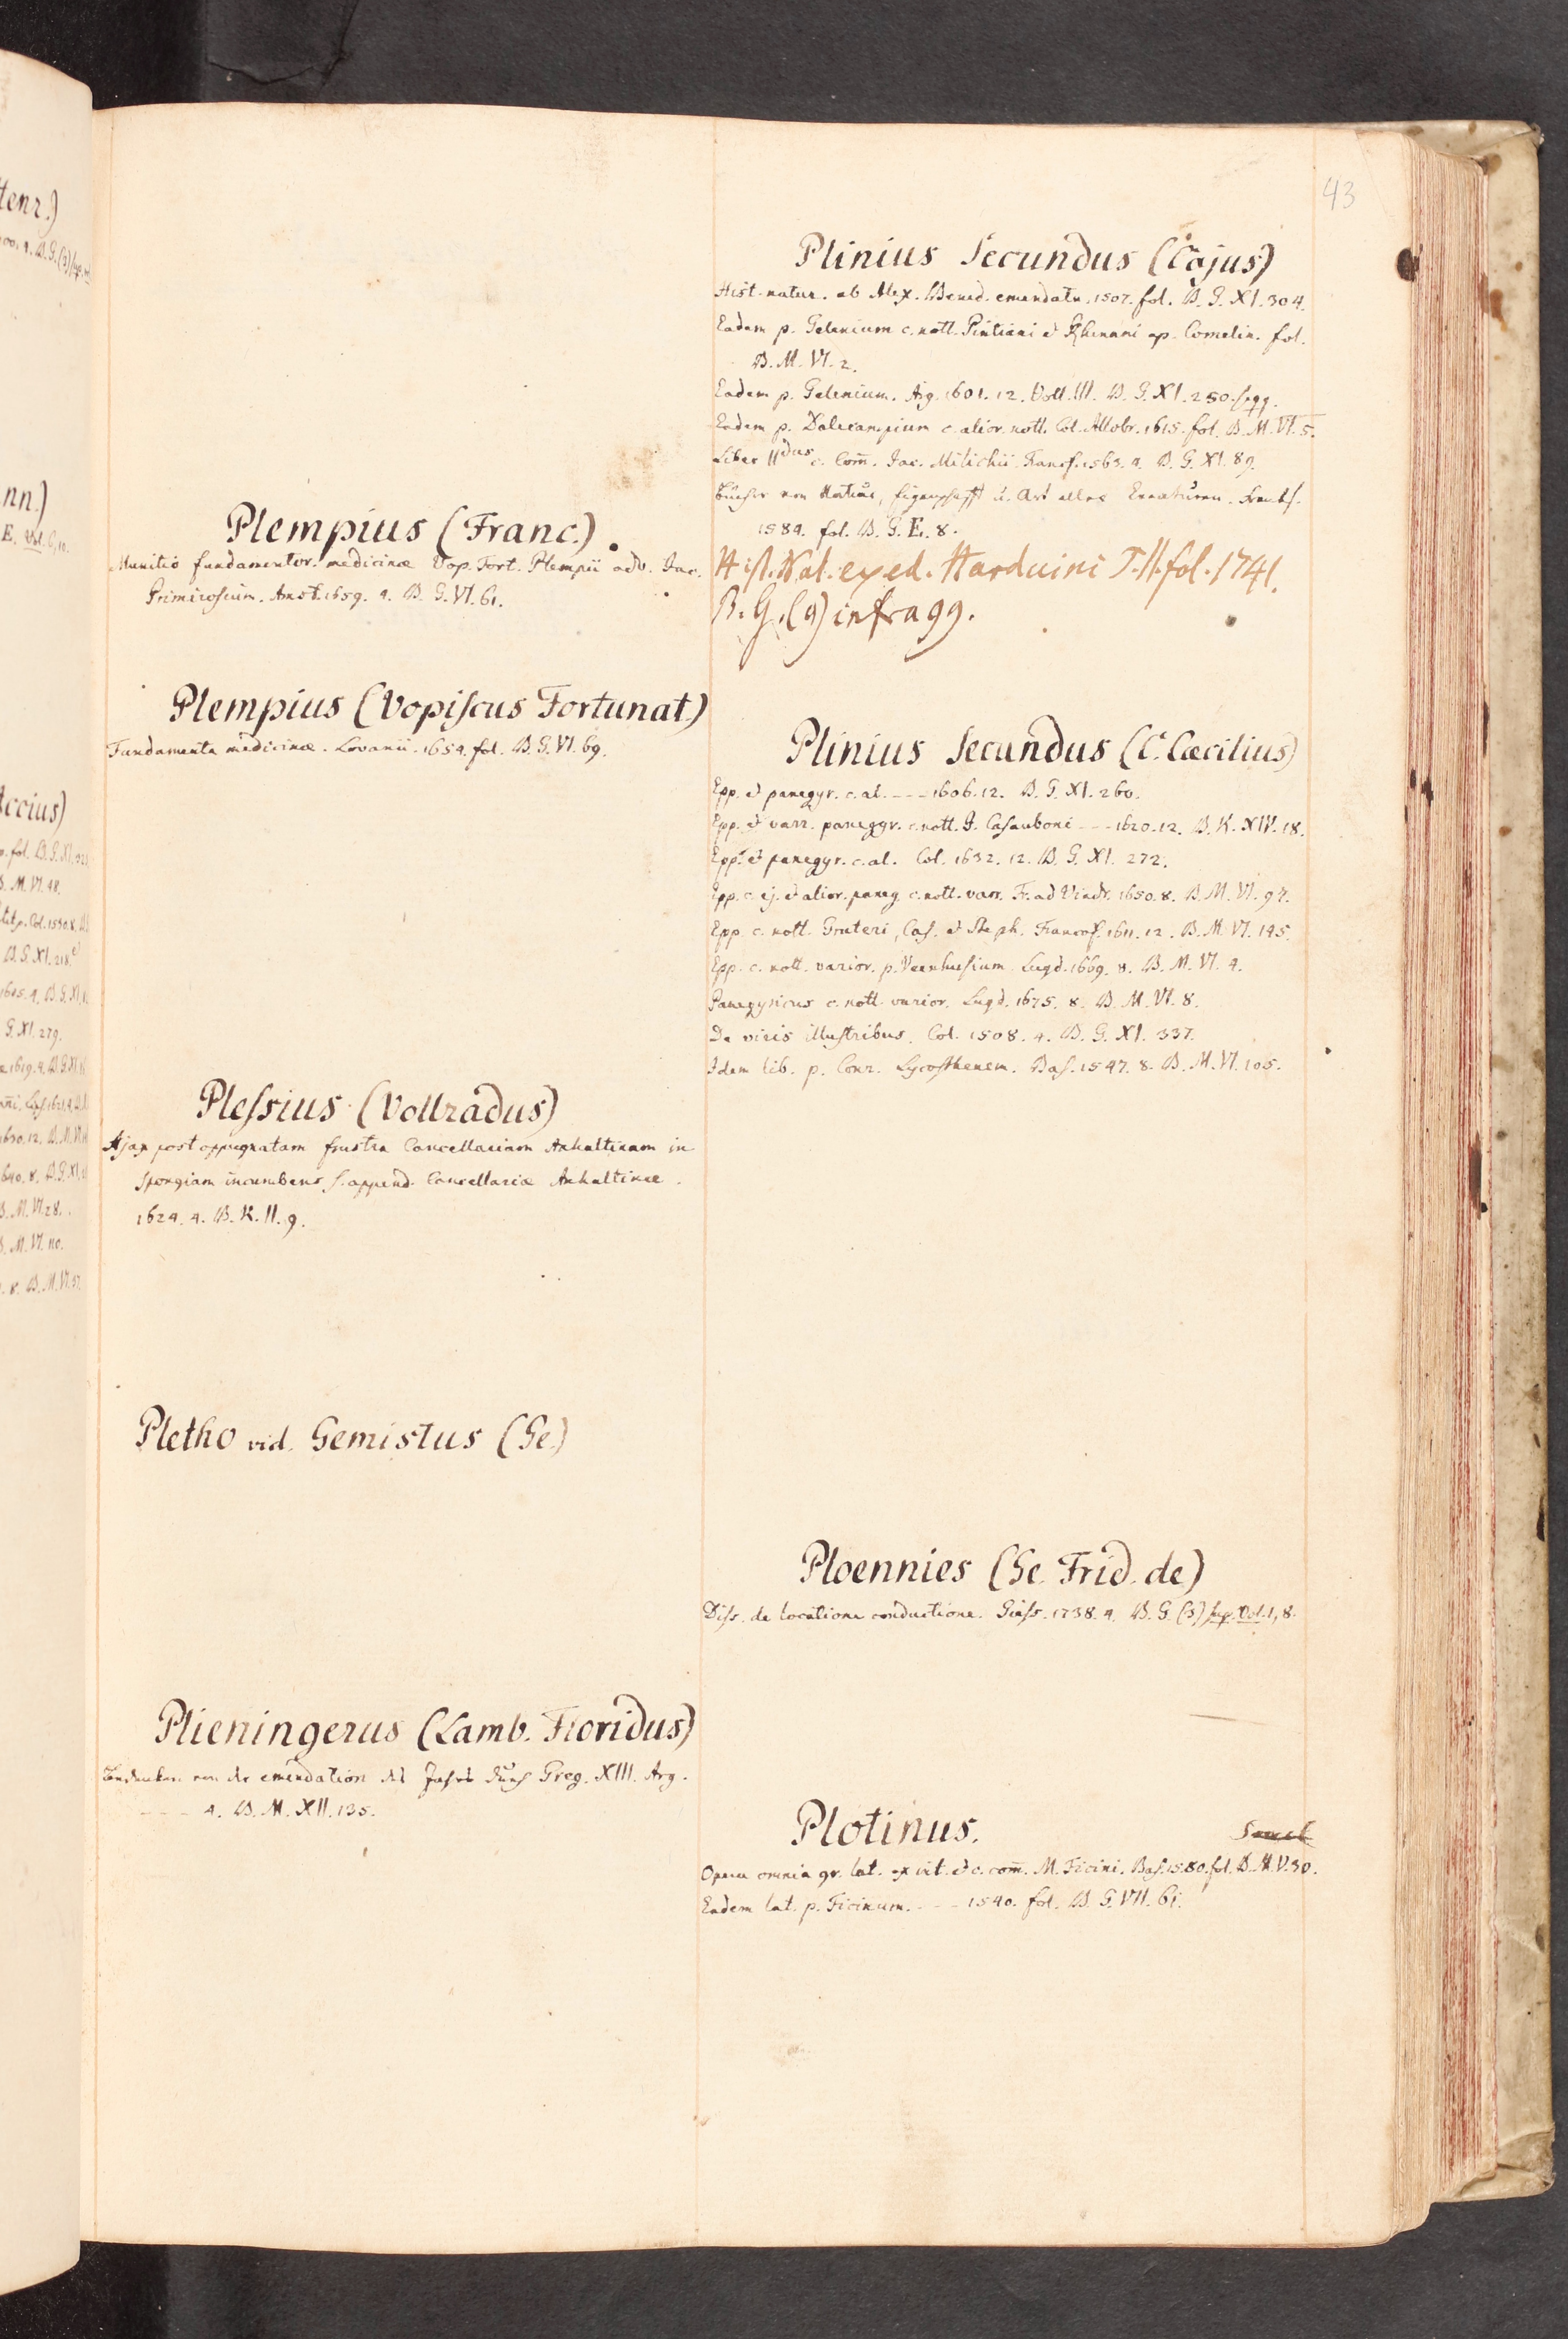 43
Plempius (Franc.)
Munitio fundamentor. medicinæ Vop. Fort. Plempii adv. Jac.
Primirosium. Amst. 1659. 4. B. G. VI. 61.
Plempius (Vopiscus Fortunat.)
Fundamenta medicinæ. Lovanii. 1654. fol. B. G. VI. 69.
Plessius (Vollradus)
Ajax post oppugnatam frustra Cancellariam Anhaltinam in
spongiam incumbens s. append. Cancellariæ Anhaltinæ.
1624. 4. B. K. II. 9.
Pletho vid. Gemistus (Ge.)
Plieningerus (Lamb. Floridus)
Bedencken von der emendation des Jahrs durch Greg. XIII. Arg.
- - - 4. B. M. XII. 135.
Plinius Secundus (Cajus)
Hist. natur. ab Alex. Bened. emendata. 1507. fol. B. G. XI. 304.
Eadem p. Gelenium c. nott. Pintiani et Rhenani ap. Comelin. fol.
B. M. VI. 2.
Eadem p. Gelenium. 1601. 12. Voll. III. B. G. XI. 250. seqq.
Eadem p. Dalecampium c. alior. nott. Col. Allobr. 1615. fol. B. M. VI. 5.
Liber II dus c. Com̄. Jac. Milichii. Francf. 1563. 4. B. G. XI. 89.
Bücher von Natur, Eigenschafft u. Art aller Creaturen. Franckf.
1584. fol. B. G. E. 8.
Hist. Nat. ex ed. Harduini T. II. fol. 1741.
B. G. (9) infra 99.
Plinius Secundus (C. Cæcilius)
Epp. et panegyr. c. al. - - - 1606. 12. B. G. XI. 260.
Epp. et varr. paneggr. c. nott. I. Casauboni - - - 1620. 12. B. K. XIV. 18.
Epp. et panegyr. c. al. Col. 1632. 12. B. G. XI. 272.
Epp. c. ej. et alior. paneg. c. nott. varr. Fr. ad Viadr. 1650. 8. B. M. VI. 97.
Epp. c. nott. Gruteri, Cas. et Steph. Francof. 1611. 12. B. M. VI. 145.
Epp. c. nott. varior. p. Veenhusium. Lugd. 1669. 8. B. M. VI. 4.
Panegyricus c. nott. varior. Lugd. 1675. 8. B. M. VI. 8.
De viris illustribus. Col. 1508. 4. B. G. XI. 337.
Idem lib. p. Conr. Lycosthenem. Bas. 1547. 8. B. M. VI. 105.
Ploennies (Ge. Frid. de)
Diss. de locatione conductione. Giess. 1738. 4. B. G. (3) sup. Vol. 1, 8.
Plotinus.
Opera omnia gr. lat. ex vit. et c. com̄. M. Ficini. Bas. 1580. fol. B. M. V. 30.
Eadem lat. p. Ficinum. - - - 1540. fol. B. G. VII. 61.